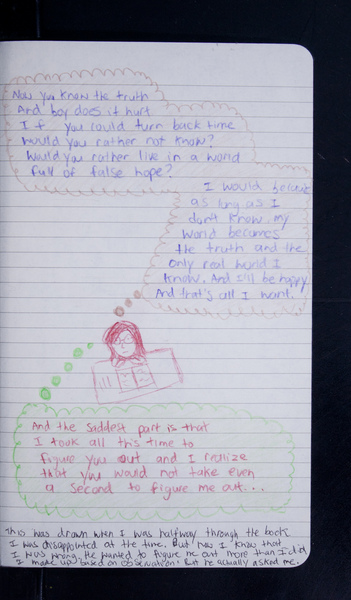 Now you know the truth
And boy does it hurt
If you could turn back time
Would you rather not know?
Would you rather live in a world
full of false hope?
I would because
as long as I
don't know my
world becomes
the truth and the
only real world I
know. And I'll be happy
And that's all I want.
And the saddest part is that
I took all this time to
figure you out and I realize
that you would not take even
a second to figure me out...
This was drawn when I was halfway through the book
I was disappointed at the time. But now I know that
I was wrong. He wanted to figure me out more than I did
I made up based on observation. But he actually asked me.